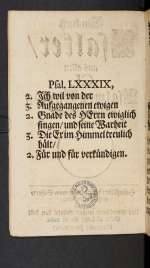 Psal. LXXXIX,
2. Ich wil von der
3. Auffgegangenen ewigen
2. Gnade des HErrn ewiglich
singen/ und seine Warheit
3. Die Er im Himmel treulich
hält/
2. Für und für verkündigen.